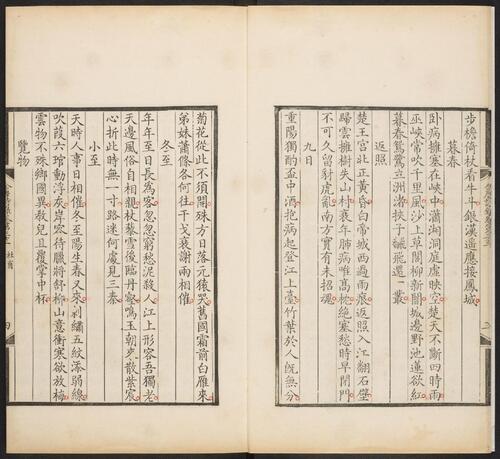 步檐倚杖看牛斗銀漢遙應接鳳城
暮春
臥病擁塞在峽中瀟湘洞庭虛映空楚天不斷四時雨
巫峽常吹千里風沙上草閣柳新闇城邊野池蓮欲紅
暮春鴛鷺立洲渚挾子翻飛還一叢
返照
楚王宮北正黃昏白帝城西過雨痕返照入江翻石壁
歸雲擁樹失山村衰年肺病唯高枕絕塞愁時早閉門
不可久留豺虎亂南方實有未招魂
九日
重陽獨酌盃中酒抱病起登江上臺竹葉於人既無分
菊花從此不須開殊方日落元猿哭舊國霜前白雁來
弟妹蕭條各何往干戈衰謝兩相催
冬至
年年至日長為客忽忽窮愁泥殺人江上形容吾獨老
天邊風俗自相親杖藜雪後臨丹壑鳴玉朝來散紫宸
心折此時無一寸路迷何處見三秦
小至
天時人事日相催冬至陽生春又來刺繡五紋添弱線
吹葭六琯動浮灰岸容待臘將舒柳山意衝寒欲放梅
雲物不殊鄉國異教兒且覆掌中杯
覽物